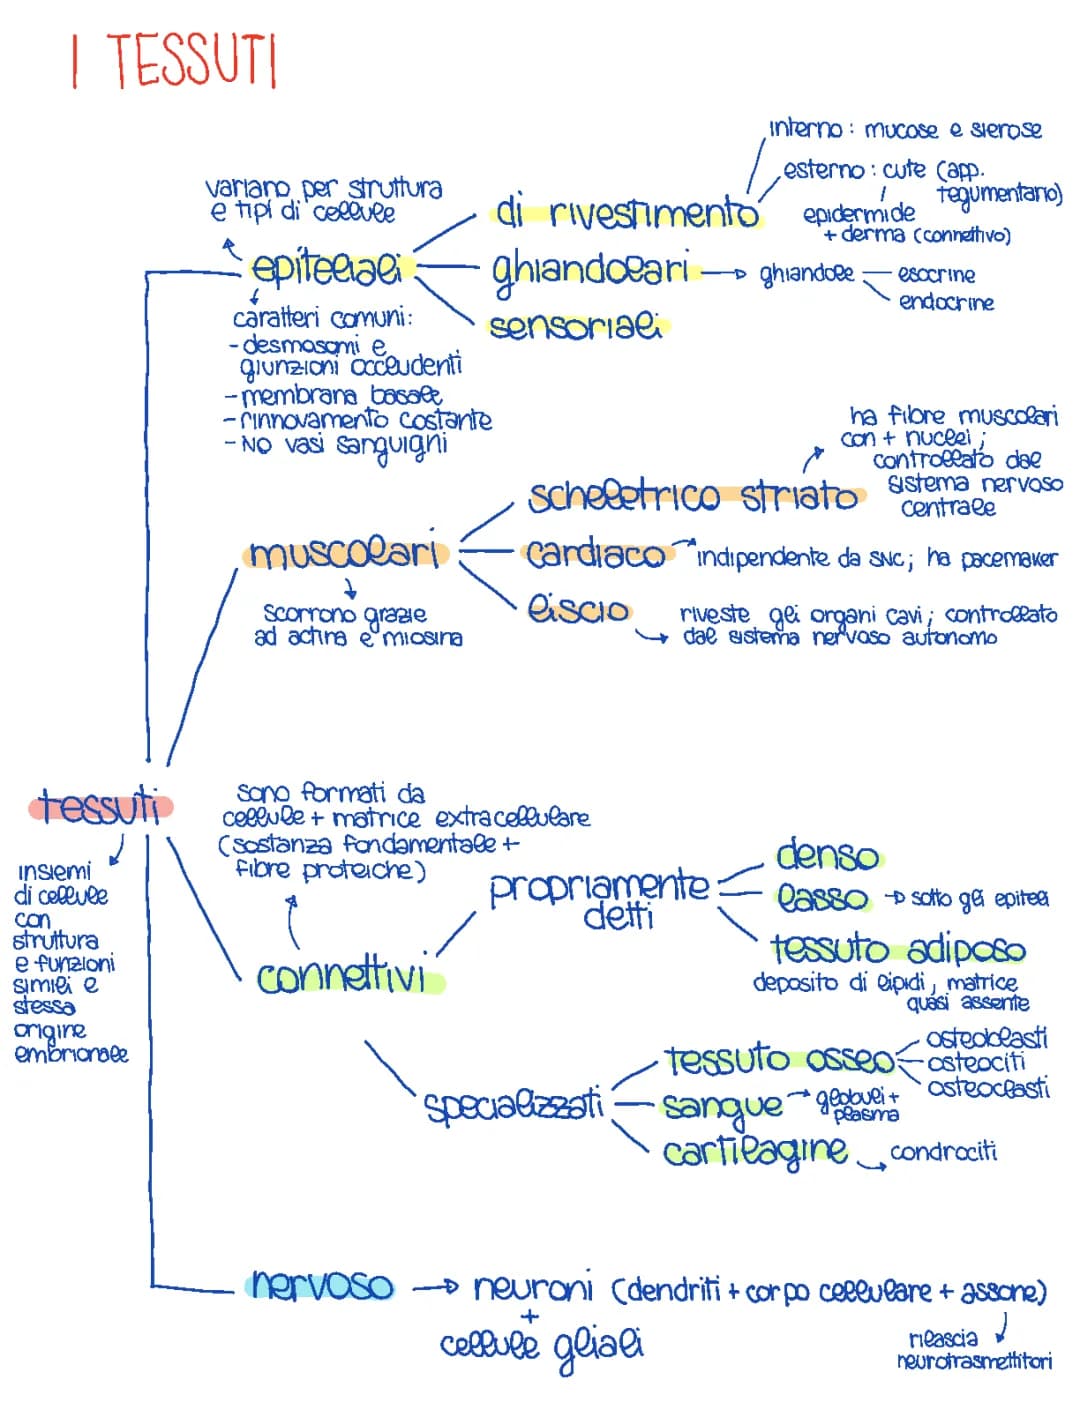 I TESSUTI
interno: mucose e sierose
esterno: cute (app.
tegumentario)
epidermide
+ derma (connettivo)
variano per struttura
e tipi di cellule
di rivestimento
epiteliali
ghiandolari
ghiandole
esocrine
endocrine
sensoriali
caratteri comuni:
- desmosomi e
giunzioni occludenti
- membrana basale
- rinnovamento costante
- NO vasi sanguigni
ha fibre muscolari
con + nuclei;
controllato dal
sistema nervoso
centrale
scheletrico striato
muscolari
cardiaco
indipendente da SNC; ha pacemaker
liscio
riveste gli organi cavi; controllato
dal sistema nervoso autonomo
scorrono grazie
ad actina e miosina
tessuti
insiemi
di cellule
con
struttura
e funzioni
simili e
stessa
origine
embrionale
sono formati da
cellule + matrice extracellulare
(sostanza fondamentale +
fibre proteiche)
connettivi
propriamente
detti
denso
lasso
sotto gli epiteli
tessuto adiposo
deposito di lipidi, matrice
quasi assente
specializzati
tessuto osseo
osteoblasti
osteociti
osteoclasti
sangue
globuli +
plasma
cartilagine
condrociti
nervoso
neuroni (dendriti + corpo cellulare + assone)
+
cellule gliali
rilascia
neurotrasmettitori